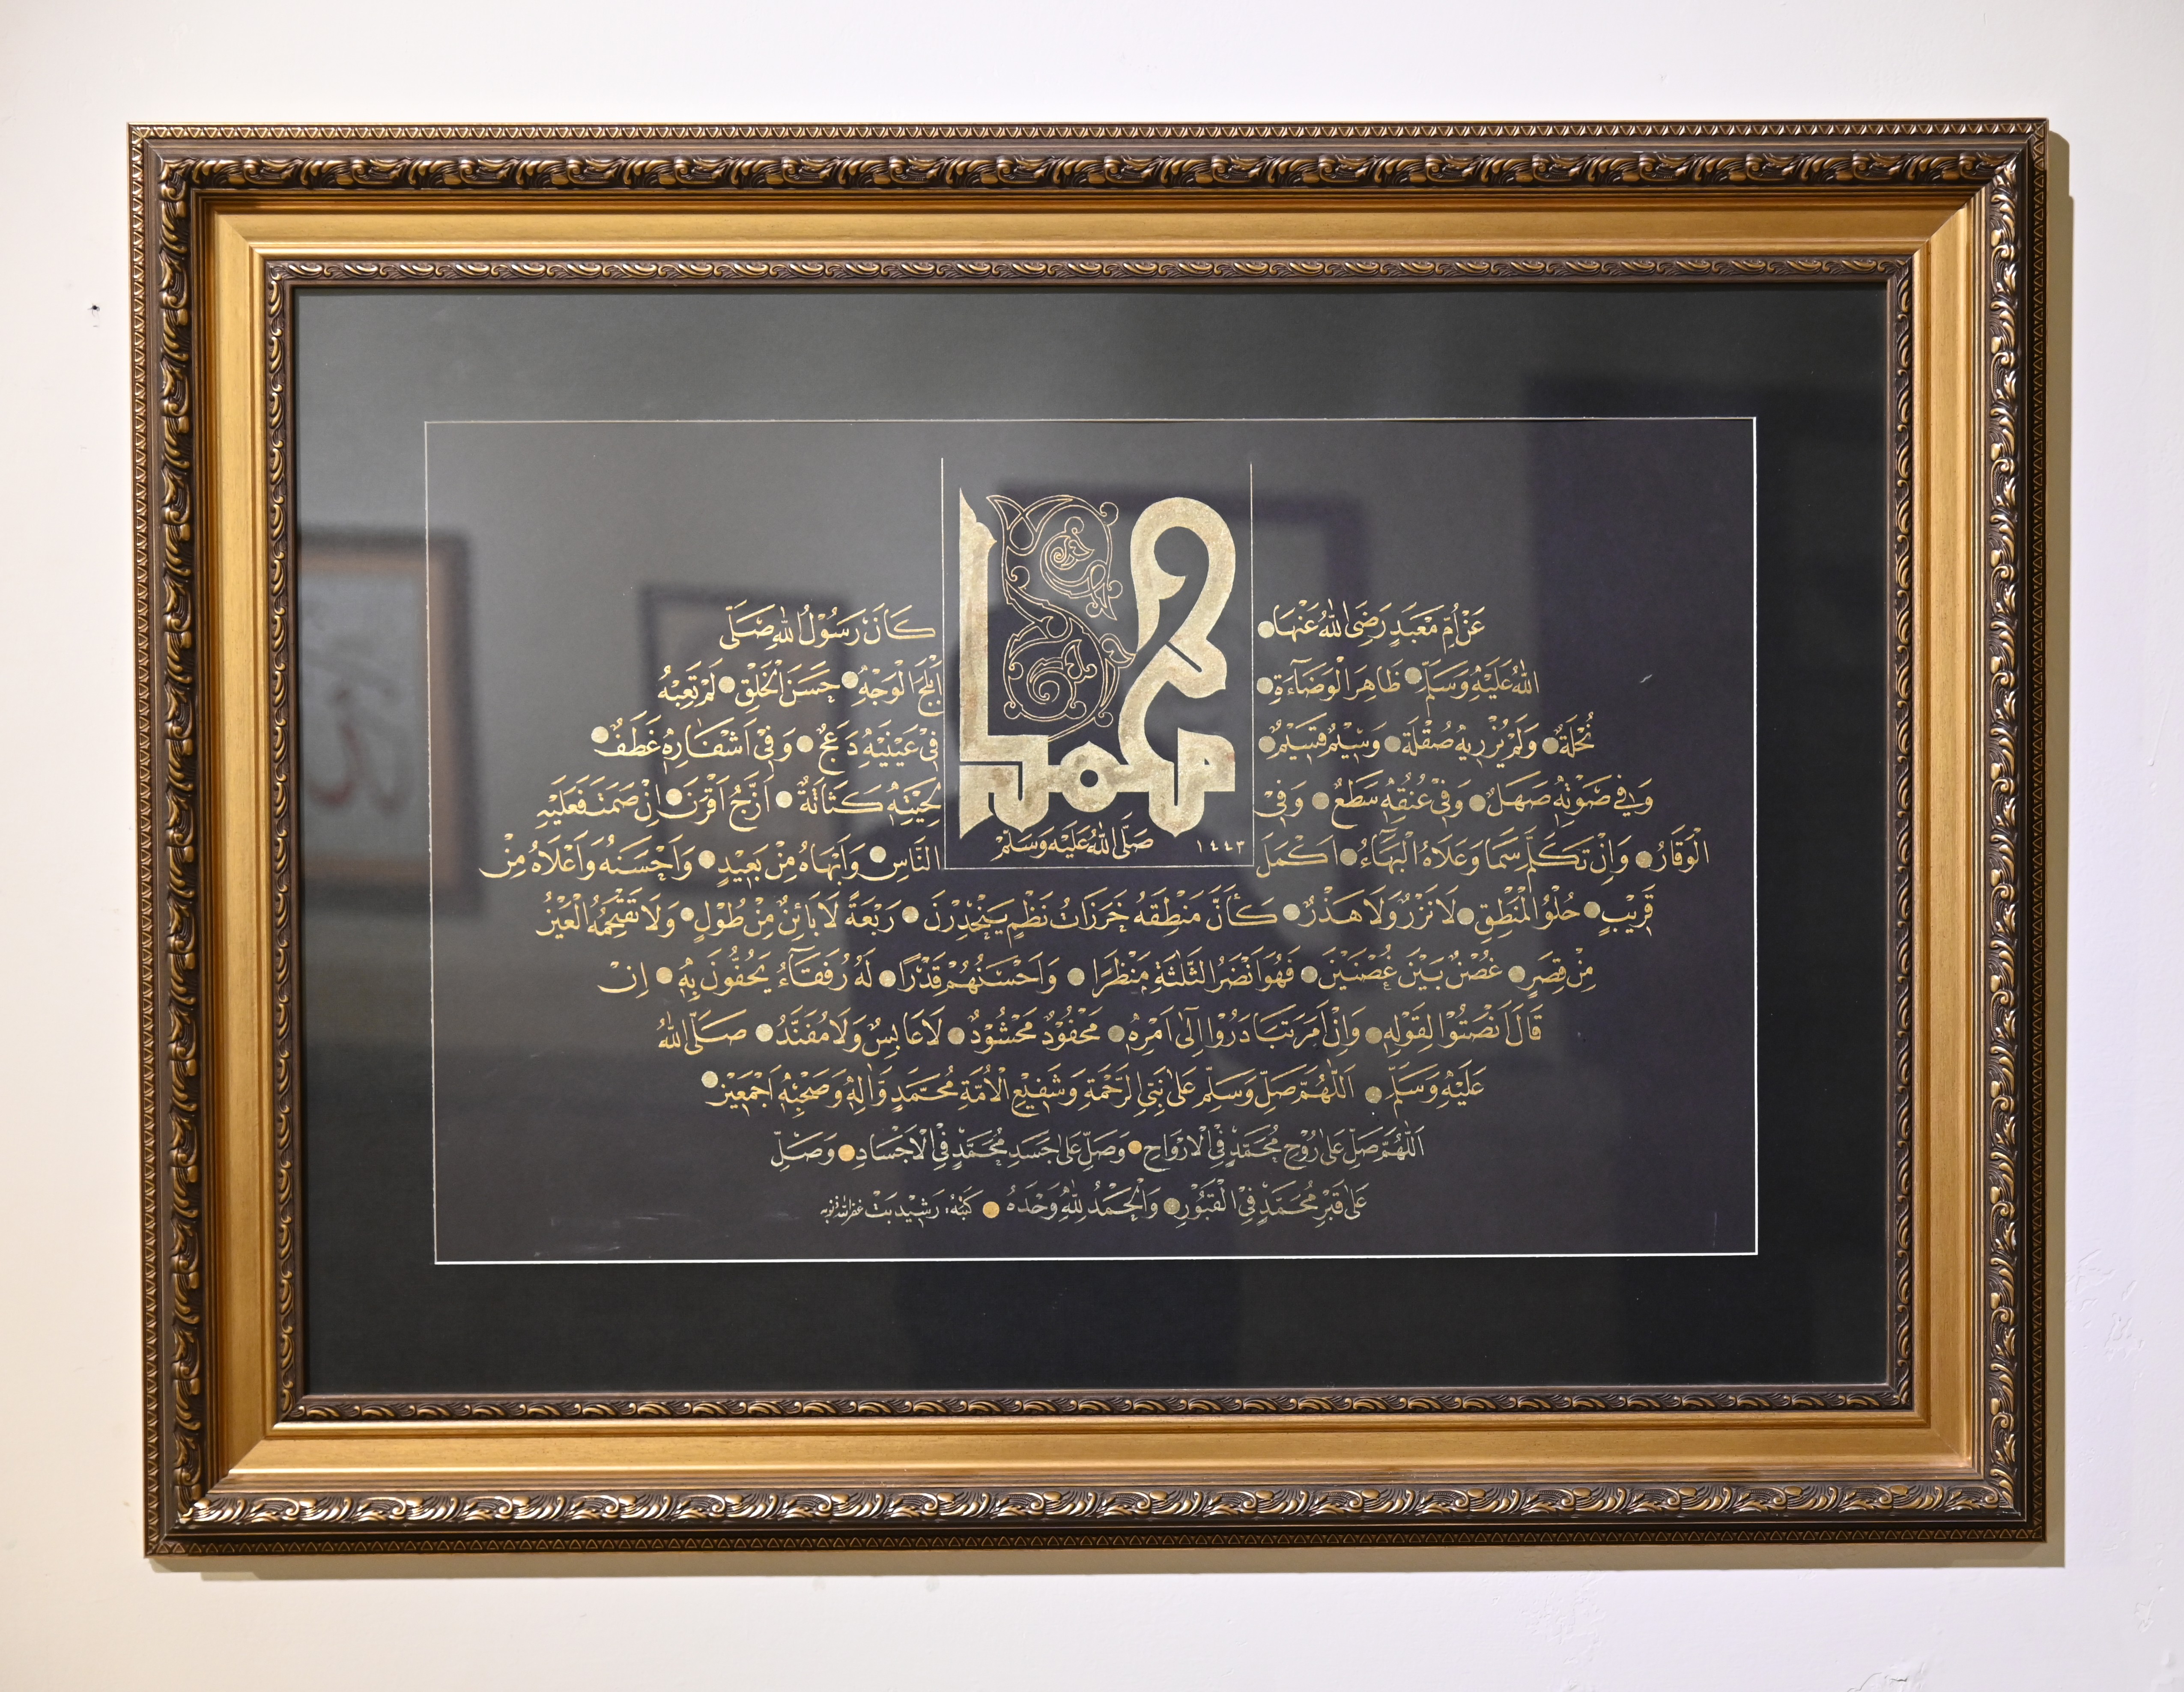 محمد
صَلَّى اللهُ عَلَيْهِ وَسَلَّمْ ١٤٤٣
عَنْ اُمِّ مَعْبَدٍ رَضَى اللهُ عَنْهَا ● كَانَ رَسُوْلُ اللهِ صَلَّى
اللهُ عَلَيْهِ وَسَلَّمِ ● ظَاهِرَ الْوَضَآءَةِ ● اَبْلَجَ الْوَجْهِ ● حَسَنَ الْخَلِقِ ● لَمْ تَعِبْهُ
نُحْلَةٌ ● وَلَمْ يُزْرِيهِ صُقْلَة ● وَسِيْمٌ قَسِيْمٌ ● فِيْ عَيْنَيْهِ دَعَجٌ ● وَفِيْ اَشْفَارِهٖ غَطَفٌ ●
وَفِي صَوْتِهٖ صَهَلٌ ● وَفِيْ عُنُقِهٖ سَطَعٌ ● وَفِيْ لِحْيَتِهٖ كَثَاثَةٌ ● اَزَجُّ اَقْرَنَ ● اِنْ صَمَتَ فَعَلَيْهِ
الْوَقَارُ ● وَاِنْ تَكَلَّمَ سَمَا وَعَلَاهُ الْبَهَآءُ ● اَكْمَلَ النَّاسِ ● وَاَبْهَاهُ مِنْ بَعِيْدٍ ● وَاَحْسَنُهُ وَاَعْلَاهُ مِنْ
قَرِيْبٍ ● حُلْوُ الْمَنْطِقِ ● لَا نَزْرٌ وَلَا هَذْرٌ ● كَأَنَّ مَنْطِقَهُ خَرَزَاتُ نَظْمٍ يَنْحَدِرْنَ ● رَبْعَةً لَا بَائِنٌ مِنْ طُوْلٍ ● وَلَا تَقْتَحِمُهُ الْعَيْنُ
مِنْ قِصَرٍ ● غُصْنٌ بَيْنَ غُصْنَيْنِ ● فَهُوَ اَنْضَرُ الثَّلٰثَةِ مَنْظَرًا ● وَاَحْسَنُهُمْ قَدْرًا ● لَهُ رُفَقَآءُ يَحُفُّونَ بِهٖ ● اِنْ
قَالَ اَنْصَتُوْا لِقَوْلِهٖ ● وَاِنْ اَمَرَ تَبَادَرُوْا اِلٰى اَمْرِهٖ ● مَحْفُوْدٌ مَحْشُوْدٌ ● لَا عَابِسٌ وَلَا مُفَنَّدٌ ● صَلَّى اللهُ
عَلَيْهِ وَسَلَّمِ ● اَللّٰهُمَّ صَلِّ وَسَلِّمْ عَلٰى نَبِيِّ الرَّحْمَةِ وَشَفِيْعِ الْاُمَّةِ مُحَمَّدٍ وَّاٰلِهٖ وَصَحْبِهٖ اَجْمَعِيْنَ ●
اَللّٰهُمَّ صَلِّ عَلٰى رُوْحِ مُحَمَّدٍ فِي الْاَرْوَاحِ ● وَصَلِّ عَلٰى جَسَدِ مُحَمَّدٍ فِي الْاَجْسَادِ ● وَصَلِّ
عَلٰى قَبْرِ مُحَمَّدٍ فِي الْقُبُوْرِ ● وَالْحَمْدُ لِلّٰهِ وَحْدَهُ ● كَتَبَهُ: رَشِيْد بَتْ غفر الله ذنوبه